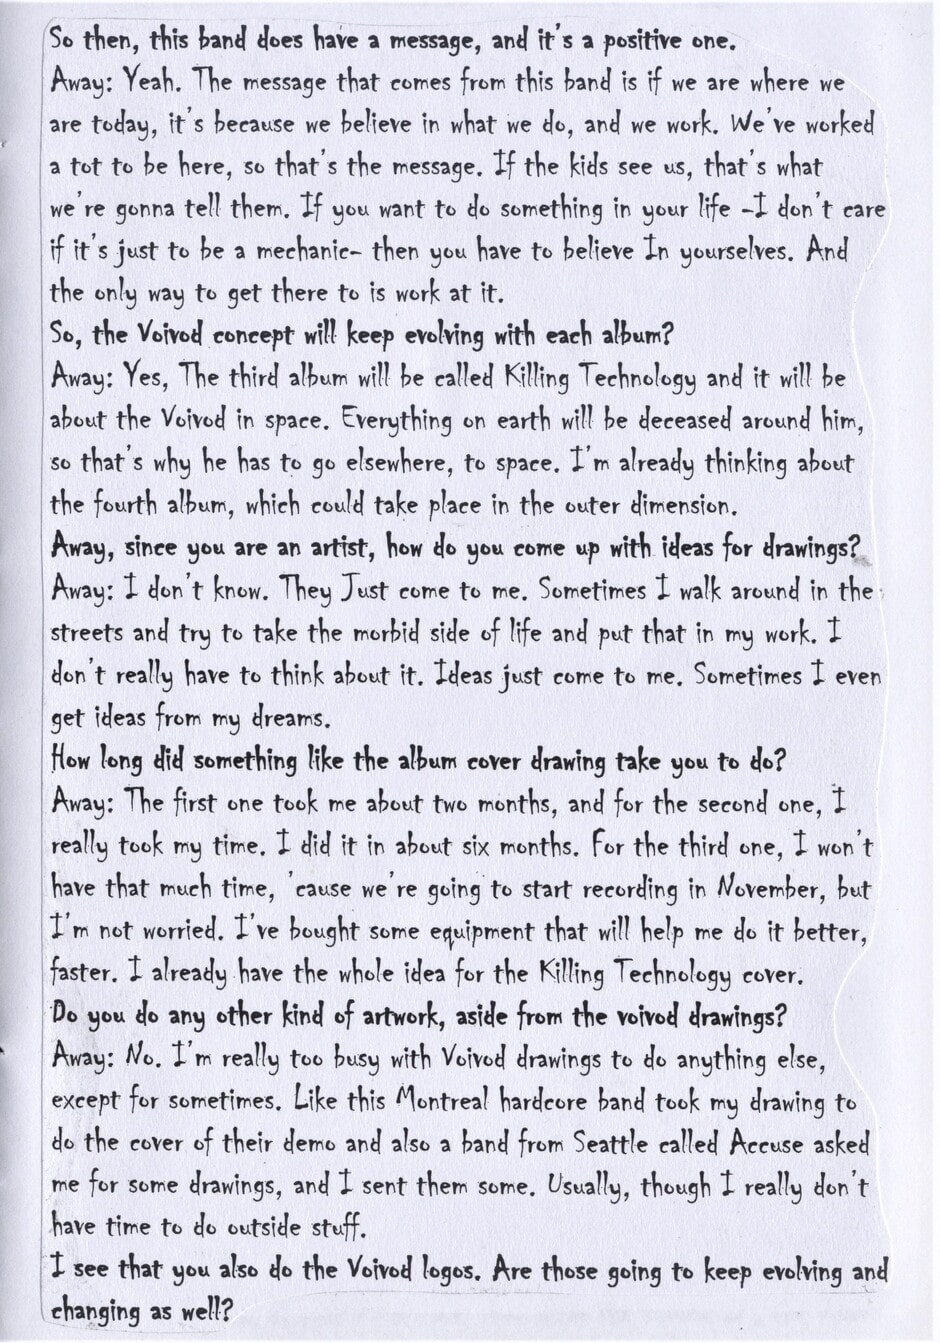 So then, this band does have a message, and it's a positive one.
Away: Yeah. The message that comes from this band is if we are where we
are today, it's because we believe in what we do, and we work. We've worked
a tot to be here, so that's the message. If the kids see us, that's what
we're gonna tell them. If you want to do something in your life -I don't care
if it's just to be a mechanic- then you have to believe In yourselves. And
the only way to get there to is work at it.
So, the Voivod concept will keep evolving with each album?
Away: Yes, The third album will be called Killing Technology and it will be
about the Voivod in space. Everything on earth will be deceased around him,
so that's why he has to go elsewhere, to space. I'm already thinking about
the fourth album, which could take place in the outer dimension.
Away, since you are an artist, how do you come up with ideas for drawings?
Away: I don't know. They Just come to me. Sometimes I walk around in the
streets and try to take the morbid side of life and put that in my work. I
don't really have to think about it. Ideas just come to me. Sometimes I even
get ideas from my dreams.
How long did something like the album cover drawing take you to do?
Away: The first one took me about two months, and for the second one, I
really took my time. I did it in about six months. For the third one, I won't
have that much time, 'cause we're going to start recording in November, but
I'm not worried. I've bought some equipment that will help me do it better,
faster. I already have the whole idea for the Killing Technology cover.
Do you do any other kind of artwork, aside from the voivod drawings?
Away: No. I'm really too busy with Voivod drawings to do anything else,
except for sometimes. Like this Montreal hardcore band took my drawing to
do the cover of their demo and also a band from Seattle called Accuse asked
me for some drawings, and I sent them some. Usually, though I really don't
have time to do outside stuff.
I see that you also do the Voivod logos. Are those going to keep evolving and
changing as well?